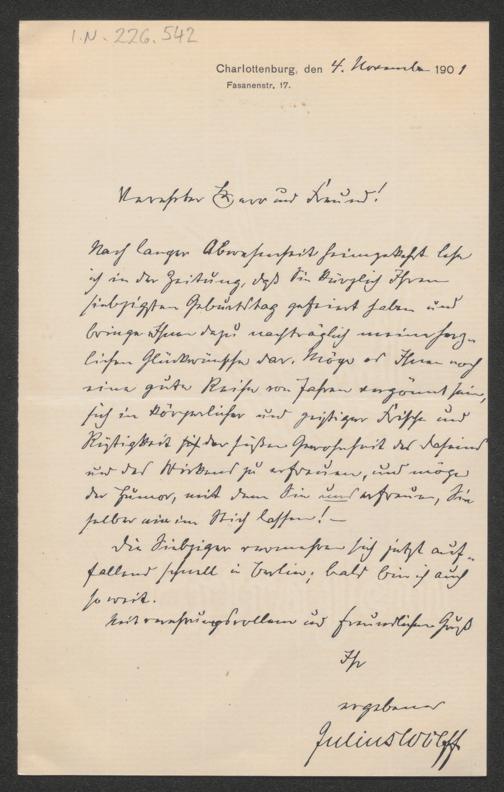 I.N. 226.542
Charlottenburg, den 4. November 1901
Fasanenstr. 17.
Verehrter Herr und Freund!
Nach langer Abwesenheit heimgekehrt lese
ich in der Zeitung, daß Sie kürzlich Ihren
siebzigsten Geburtstag gefeiert haben und
bringe Ihnen dazu nachträglich meine herz-
lichen Glückwünsche dar. Möge es Ihnen noch
eine gute Reihe von Jahren vergönnt sein,
sich in körperlicher und geistiger Frische und
Rüstigkeit der süßen Gewohnheit des Daseins
und des Wirkens zu erfreuen, und möge
der Humor, mit dem Sie uns erfreuen, Sie
selber nie im Stich lassen! —
Die Siebziger vermehren sich jetzt auf-
fallend schnell in Berlin; bald bin ich auch
so weit.
Mit verehrungsvollem und freundlichem Gruß
Ihr
ergebener
Julius Wolff